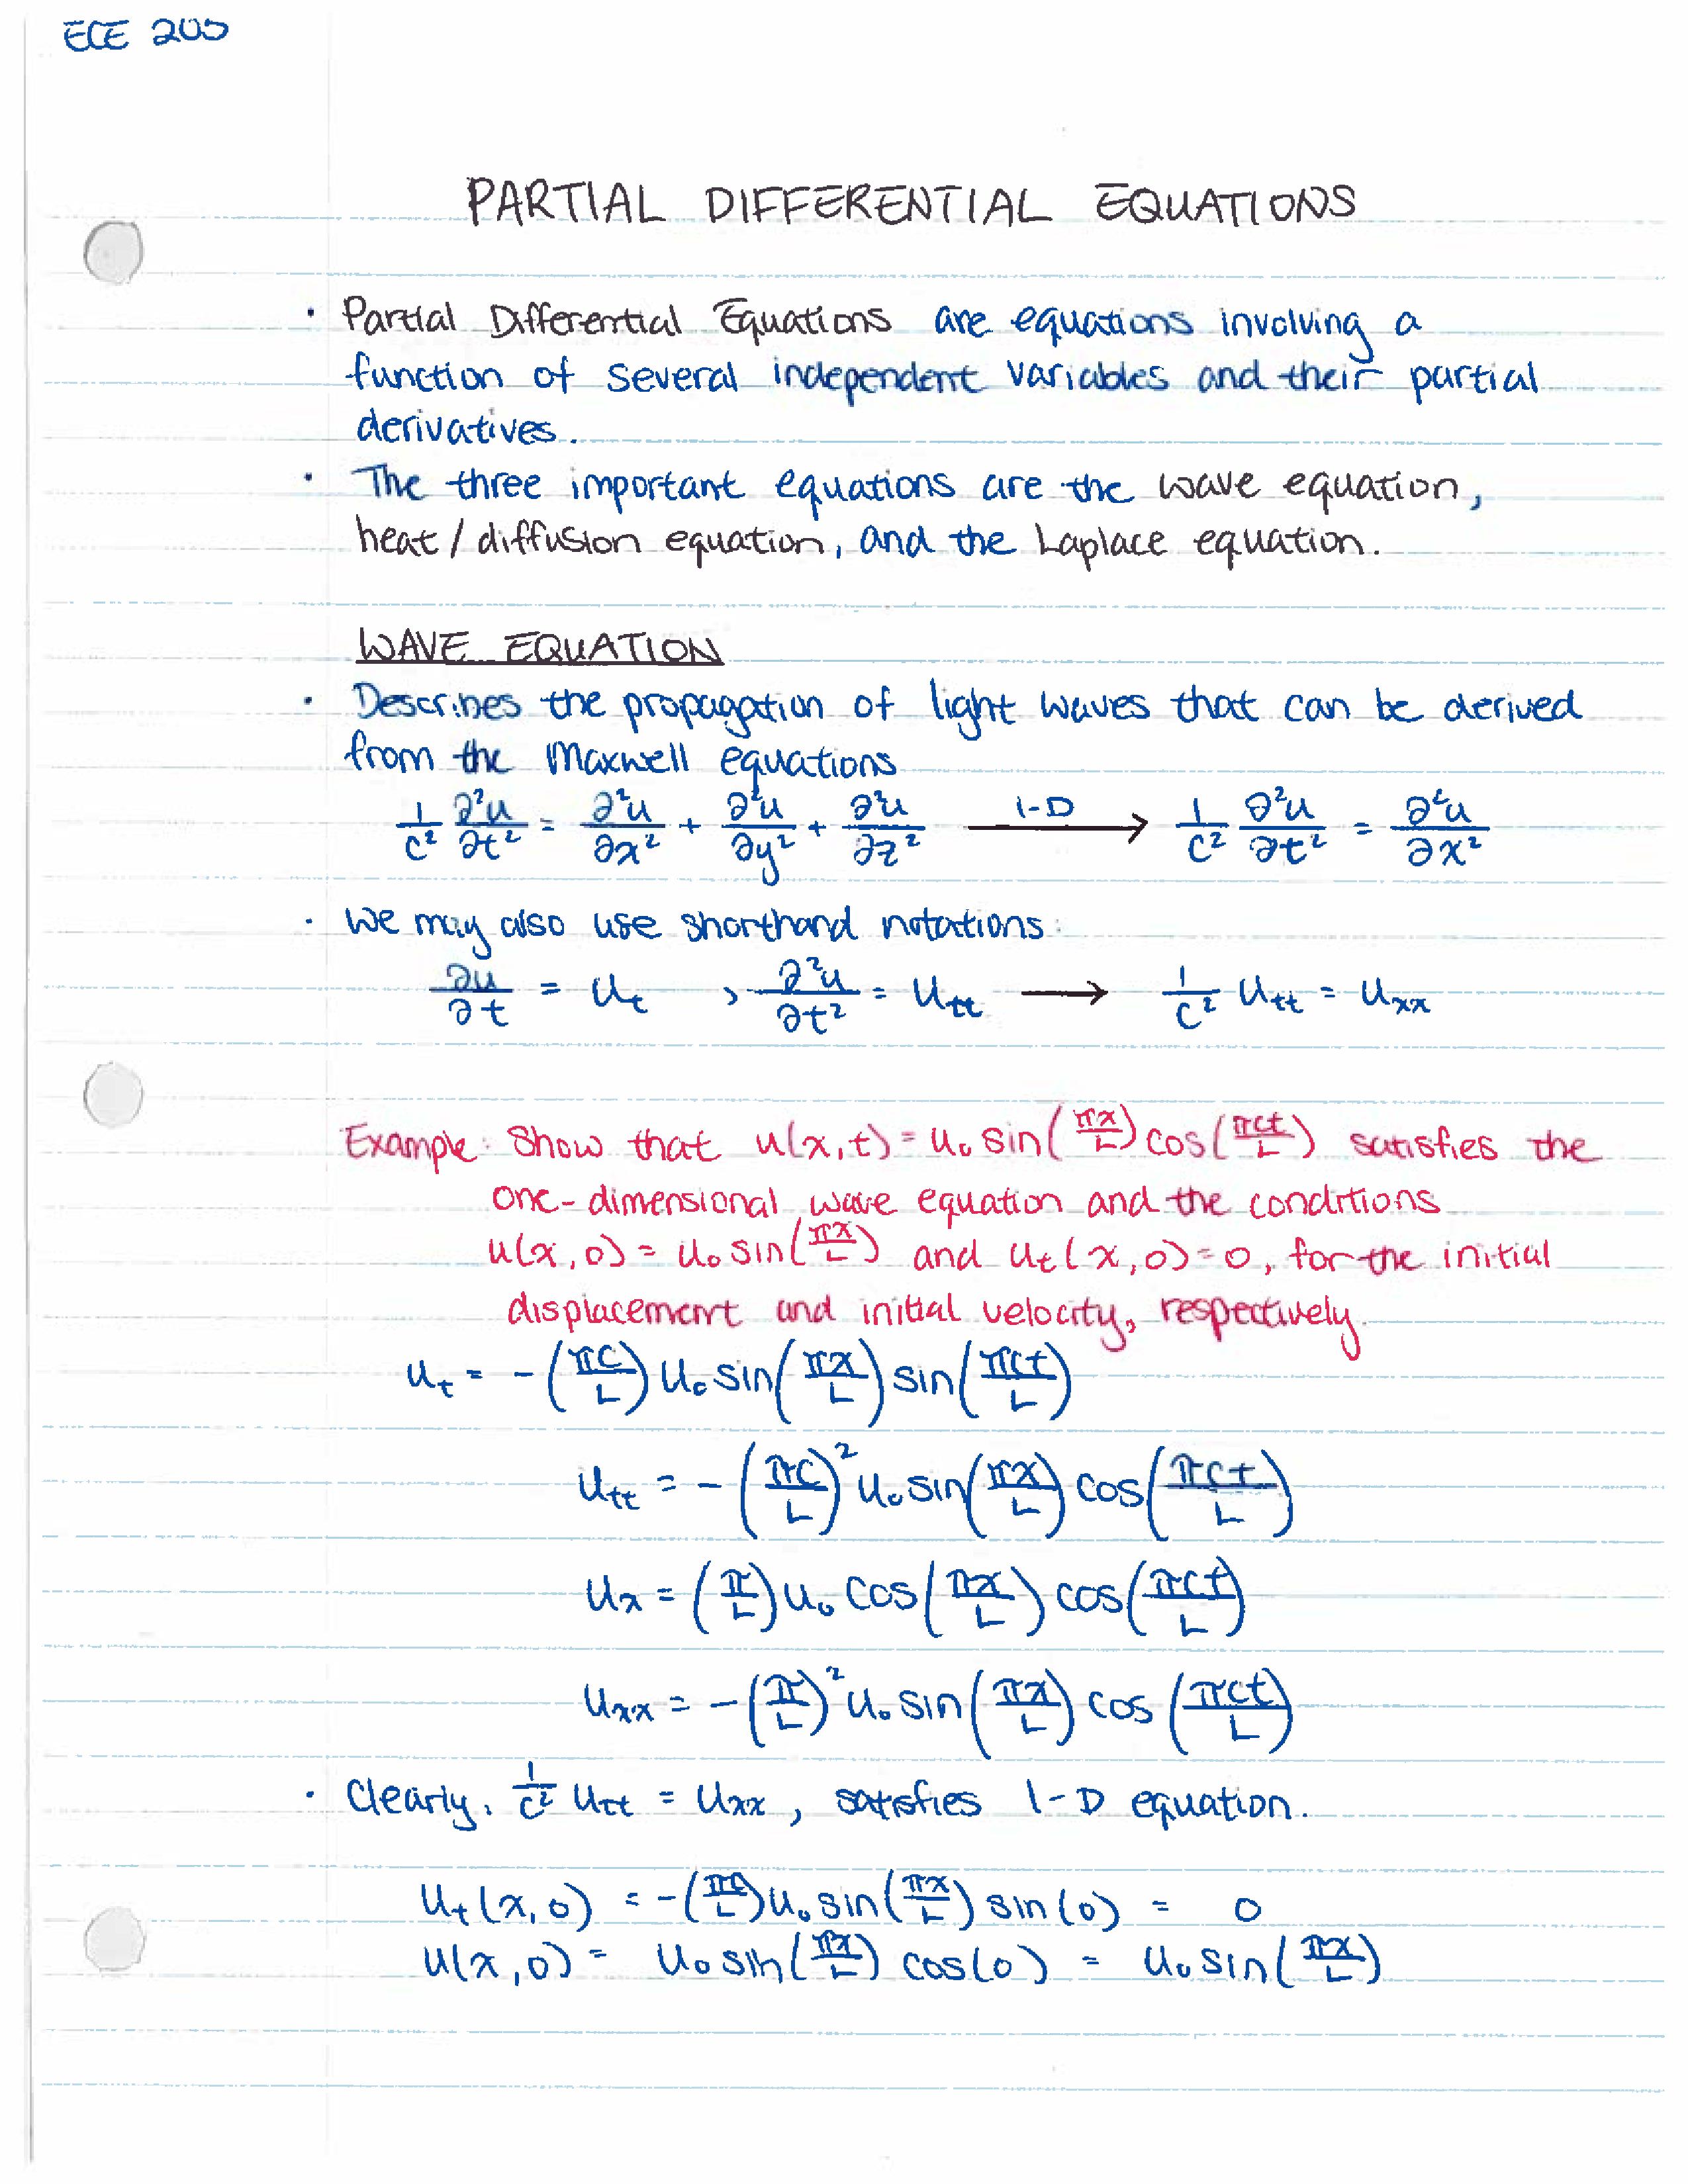 ECE 205
PARTIAL DIFFERENTIAL EQUATIONS
· Partial Differential Equations are equations involving a
function of several independent variables and their partial
derivatives.
· The three important equations are the wave equation,
heat / diffusion equation, and the Laplace equation.
WAVE EQUATION
· Describes the propagation of light waves that can be derived
from the Maxwell equations
1/c² ∂²u/∂t² = ∂²u/∂x² + ∂²u/∂y² + ∂²u/∂z² —1-D→ 1/c² ∂²u/∂t² = ∂²u/∂x²
· We may also use shorthand notations:
∂u/∂t = u_t , ∂²u/∂t² = u_tt → 1/c² u_tt = u_xx
Example: Show that u(x,t) = u₀ sin(πx/L) cos(πct/L) satisfies the
one-dimensional wave equation and the conditions
u(x,0) = u₀ sin(πx/L) and u_t(x,0) = 0, for the initial
displacement and initial velocity, respectively.
u_t = -(πc/L) u₀ sin(πx/L) sin(πct/L)
u_tt = -(πc/L)² u₀ sin(πx/L) cos(πct/L)
u_x = (π/L) u₀ cos(πx/L) cos(πct/L)
u_xx = -(π/L)² u₀ sin(πx/L) cos(πct/L)
· Clearly, 1/c² u_tt = u_xx, satisfies 1-D equation.
u_t(x,0) = -(πc/L) u₀ sin(πx/L) sin(0) = 0
u(x,0) = u₀ sin(πx/L) cos(0) = u₀ sin(πx/L)